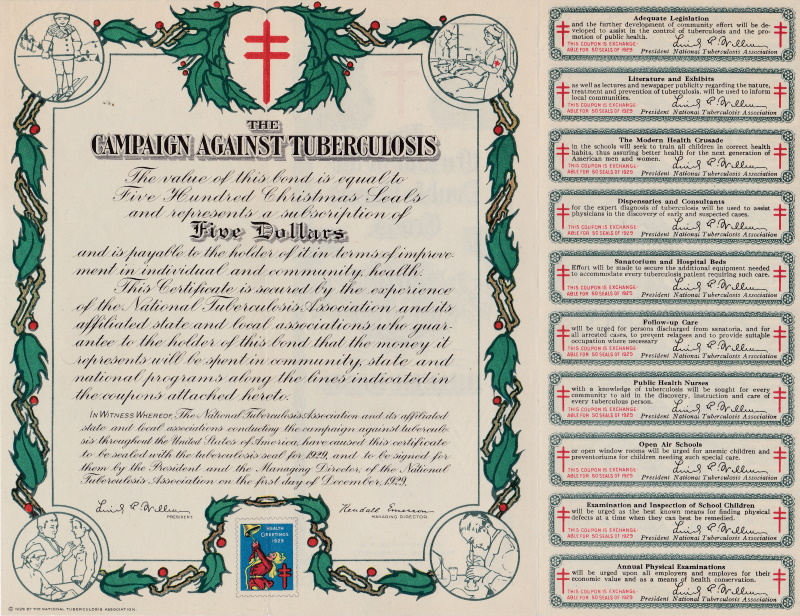 THE
CAMPAIGN AGAINST TUBERCULOSIS
The value of this bond is equal to
Five Hundred Christmas Seals
and represents a subscription of
Five Dollars
and is payable to the holder of it in terms of improve-
ment in individual and community health.
This Certificate is secured by the experience
of the National Tuberculosis Association and its
affiliated state and local associations who guar-
antee to the holder of this bond that the money it
represents will be spent in community, state and
national programs along the lines indicated in
the coupons attached hereto.
IN WITNESS WHEREOF, The National Tuberculosis Association and its affiliated
state and local associations conducting the campaign against tuberculo-
sis throughout the United States of America, have caused this certificate
to be sealed with the tuberculosis seal for 1929, and to be signed for
them by the President and the Managing Director, of the National
Tuberculosis Association on the first day of December, 1929.
PRESIDENT.
Kendall Emerson
MANAGING DIRECTOR.
HEALTH
GREETINGS
1929
© 1929 BY THE NATIONAL TUBERCULOSIS ASSOCIATION.
Adequate Legislation
and the further development of community effort will be de-
veloped to assist in the control of tuberculosis and the pro-
motion of public health.
THIS COUPON IS EXCHANGE-
ABLE FOR 50 SEALS OF 1929
President National Tuberculosis Association
Literature and Exhibits
as well as lectures and newspaper publicity regarding the nature,
treatment and prevention of tuberculosis, will be used to inform
local communities.
THIS COUPON IS EXCHANGE-
ABLE FOR 50 SEALS OF 1929
President National Tuberculosis Association
The Modern Health Crusade
in the schools will seek to train all children in correct health
habits, thus assuring better health for the next generation of
American men and women.
THIS COUPON IS EXCHANGE-
ABLE FOR 50 SEALS OF 1929
President National Tuberculosis Association
Dispensaries and Consultants
for the expert diagnosis of tuberculosis will be used to assist
physicians in the discovery of early and suspected cases.
THIS COUPON IS EXCHANGE-
ABLE FOR 50 SEALS OF 1929
President National Tuberculosis Association
Sanatorium and Hospital Beds
Effort will be made to secure the additional equipment needed
to accommodate every tuberculosis patient requiring such care.
THIS COUPON IS EXCHANGE-
ABLE FOR 50 SEALS OF 1929
President National Tuberculosis Association
Follow-up Care
will be urged for persons discharged from sanatoria, and for
all arrested cases, to prevent relapses and to provide suitable
occupation where necessary
THIS COUPON IS EXCHANGE-
ABLE FOR 50 SEALS OF 1929
President National Tuberculosis Association
Public Health Nurses
with a knowledge of tuberculosis will be sought for every
community to aid in the discovery, instruction and care of
every tuberculous person.
THIS COUPON IS EXCHANGE-
ABLE FOR 50 SEALS OF 1929
President National Tuberculosis Association
Open Air Schools
or open window rooms will be urged for anemic children and
preventoriums for children needing such special care.
THIS COUPON IS EXCHANGE-
ABLE FOR 50 SEALS OF 1929
President National Tuberculosis Association
Examination and Inspection of School Children
will be urged as the best known means for finding physical
defects at a time when they can best be remedied.
THIS COUPON IS EXCHANGE-
ABLE FOR 50 SEALS OF 1929
President National Tuberculosis Association
Annual Physical Examinations
will be urged upon all employers and employes for their
economic value and as a means of health conservation.
THIS COUPON IS EXCHANGE-
ABLE FOR 50 SEALS OF 1929
President National Tuberculosis Association